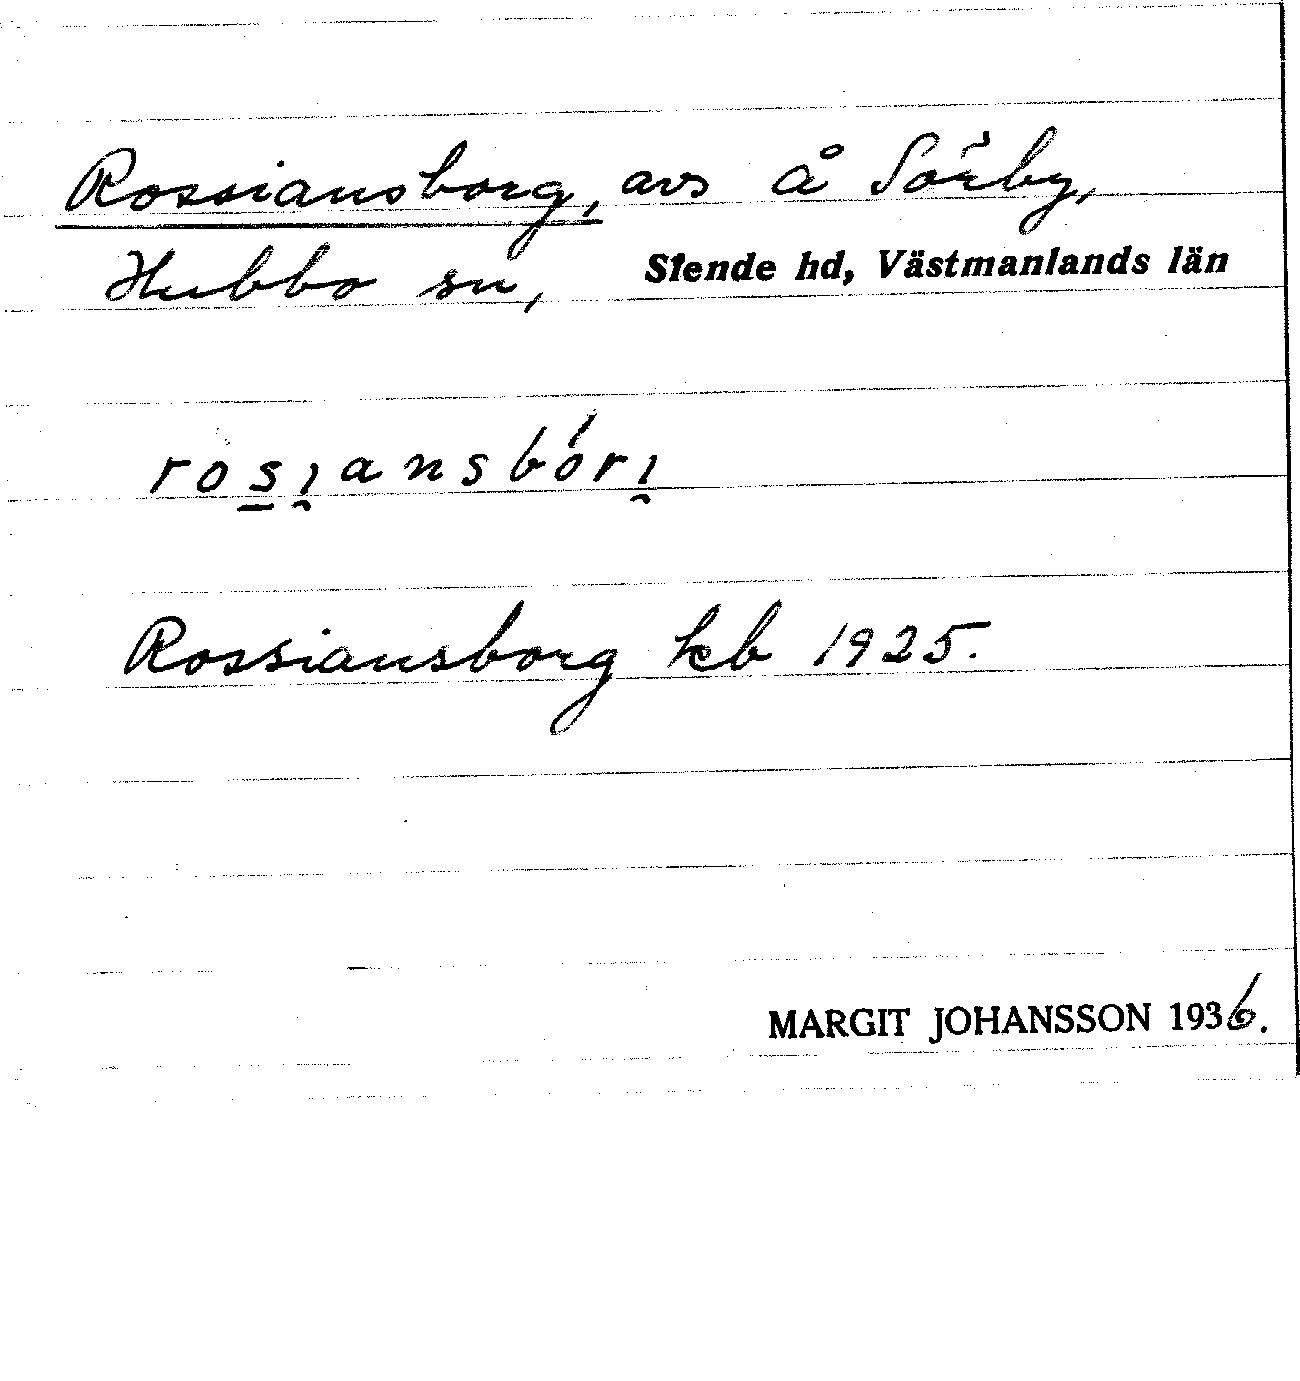 Rossiansborg, avs å Sörby,
Hubbo sn, Siende hd, Västmanlands län
rosı̯ansbórı̯
Rossiansborg kb 1925.
MARGIT JOHANSSON 1936.